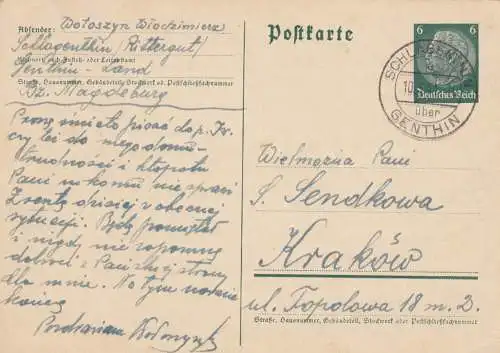 Absender: Wołoszyn Włodzimierz
Schlagenthin (Rittergut)
Wohnort, auch Zustell- oder Leitpostamt
Genthin-Land
Straße, Hausnummer, Gebäudeteil, Stockwerk od. Postschließfachnummer
Bz. Magdeburg
Proszę śmiało pisać do p. Kr.
czy lei do niego
trudności i kłopotu
Pani nikomu nie sprawi
Zresztą dzisiaj w obecnej
sytuacji. Będę pamiętał
i nigdy nie zapomnę
dobroci z Pańskiej strony
dla mnie. Na tym
kończę
Pozdrawiam Wołoszyn
Postkarte
6 6
Deutsches Reich
SCHLAGENTHIN
10
über
GENTHIN
Wielmożna Pani
S. Sendkowa
Kraków
ul. Topolowa 18 m. 2.
Straße, Hausnummer, Gebäudeteil, Stockwerk oder Postschließfachnummer